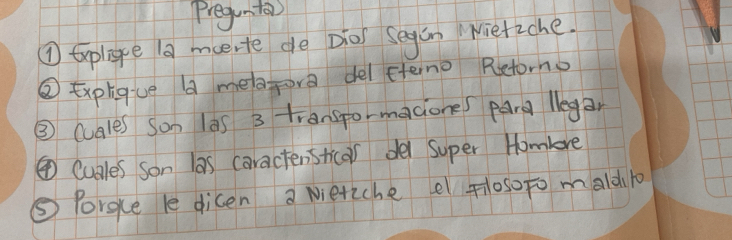 Preguntas
① Explique la muerte de Dios según Nietzche.
② Explique la metafora del Eterno Retorno
③ Cuales son las 3 transformaciones para llegar
④ Cuales son las caracteristicas del Super Hombre
⑤ Porque le dicen a Nietzche el filosofo maldito